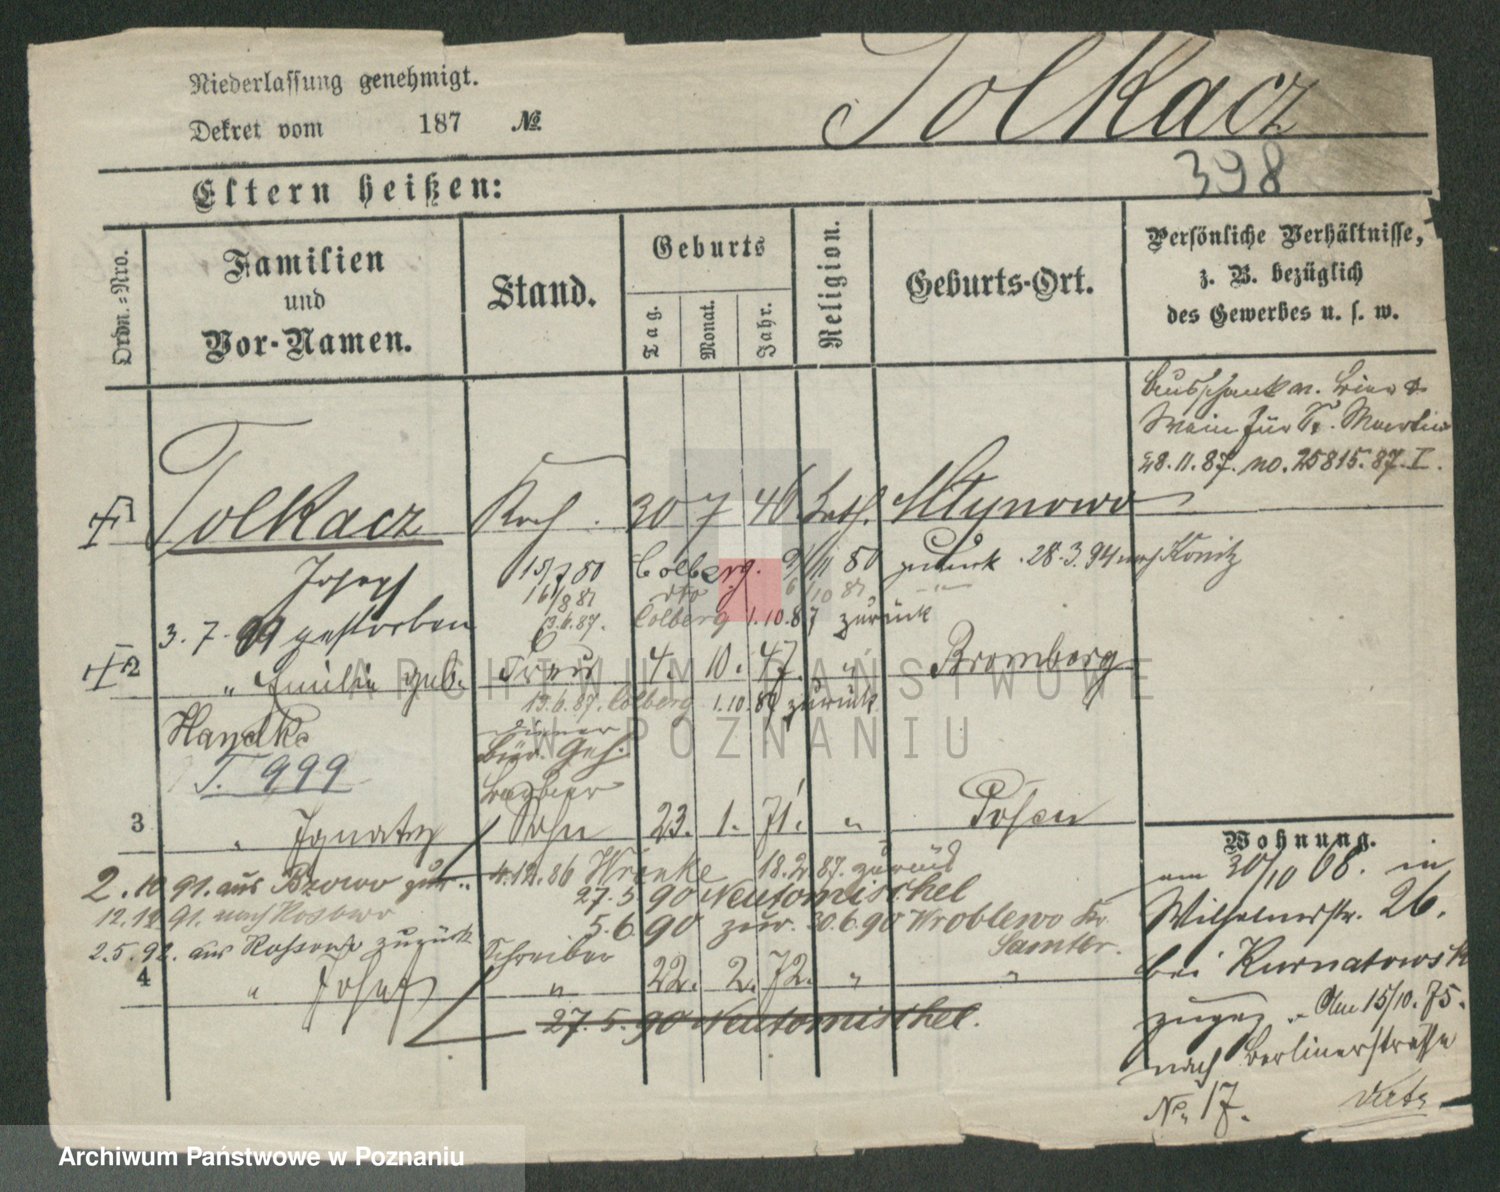 Niederlassung genehmigt.
Dekret vom 187 №
Tolkacz
398
Eltern heißen:
Ordn.=Nro.
Familien
und
Vor-Namen.
Stand.
Geburts
Tag.
Monat.
Jahr.
Religion.
Geburts-Ort.
Persönliche Verhältnisse,
z. B. bezüglich
des Gewerbes u. s. w.
Ausschank v. Bier &
Wein für St. Martin
28.11.87. no. 25815.87.I.
1 Tolkacz Koch. 30 7 46 kath. Młynowo
Josef 15/7 80 Colberg. 9/11 80 zurück. 28.3.94 nach Konitz
16/8 81 dto 6/10 81 - " -
13.6.87. Colberg 1.10.87 zurück
3.7.99 gestorben
2 " Emilie geb. Frau 4. 10. 47. " Bromberg
13.6.87. Colberg 1.10.87 zurück
Handke
T. 999
Büro. Geh.
3 " Ignatz Sohn 23. 1. 71. " Posen
4.12.86 Wronke 18.2.87. zurück
2.10.91. aus Brzowo zur..
27.5.90 Neutomischel
12.12.91. nach
5.6.90 zur. 30.6.90 Wroblewo Kr.
Samter.
2.5.92. aus zurück
Schreiber
4 " Josef " 22. 2. 72. " "
27.5.90 Neutomischel.
Wohnung.
am 30/10 68. in
Wilhelmstr. 26.
bei Kurnatowsk
zugez. - Am 15/10.75.
nach Berlinerstrasse
No. 17.
ARCHIWUM PAŃSTWOWE
W POZNANIU
Archiwum Państwowe w Poznaniu